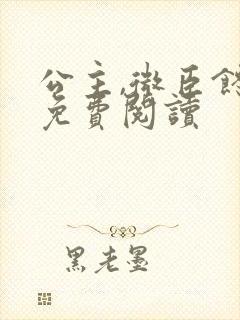 公主,微臣饿
免費閱讀
黑老墨